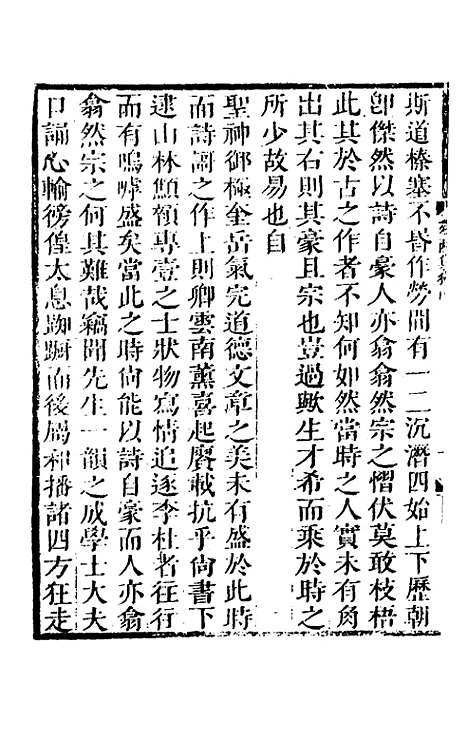 斯道榛塞不昏作勞間有一二沉濟四始上下歷朝
卽傑然以詩自豪人亦翕翕然宗之慴伏莫敢枝梧
此其於古之作者不知何如然當時之人實未有角
出其右則其豪且宗也豈過歟生才希而乘於時之
所少故易也自
聖神御極奎岳氣完道德文章之美未有盛於此時
而詩謌之作上則卿雲南薰喜起賡載抗乎尙書下
逮山林顦顇專壹之士狀物寫情追逐李杜者往往
而有嗚嘑盛矣當此之時尙能以詩自豪而人亦翕
翕然宗之何其難哉竊聞先生一韻之成學士大夫
口誦心輸徬徨太息踟蹰而後屬和播諸四方狂走